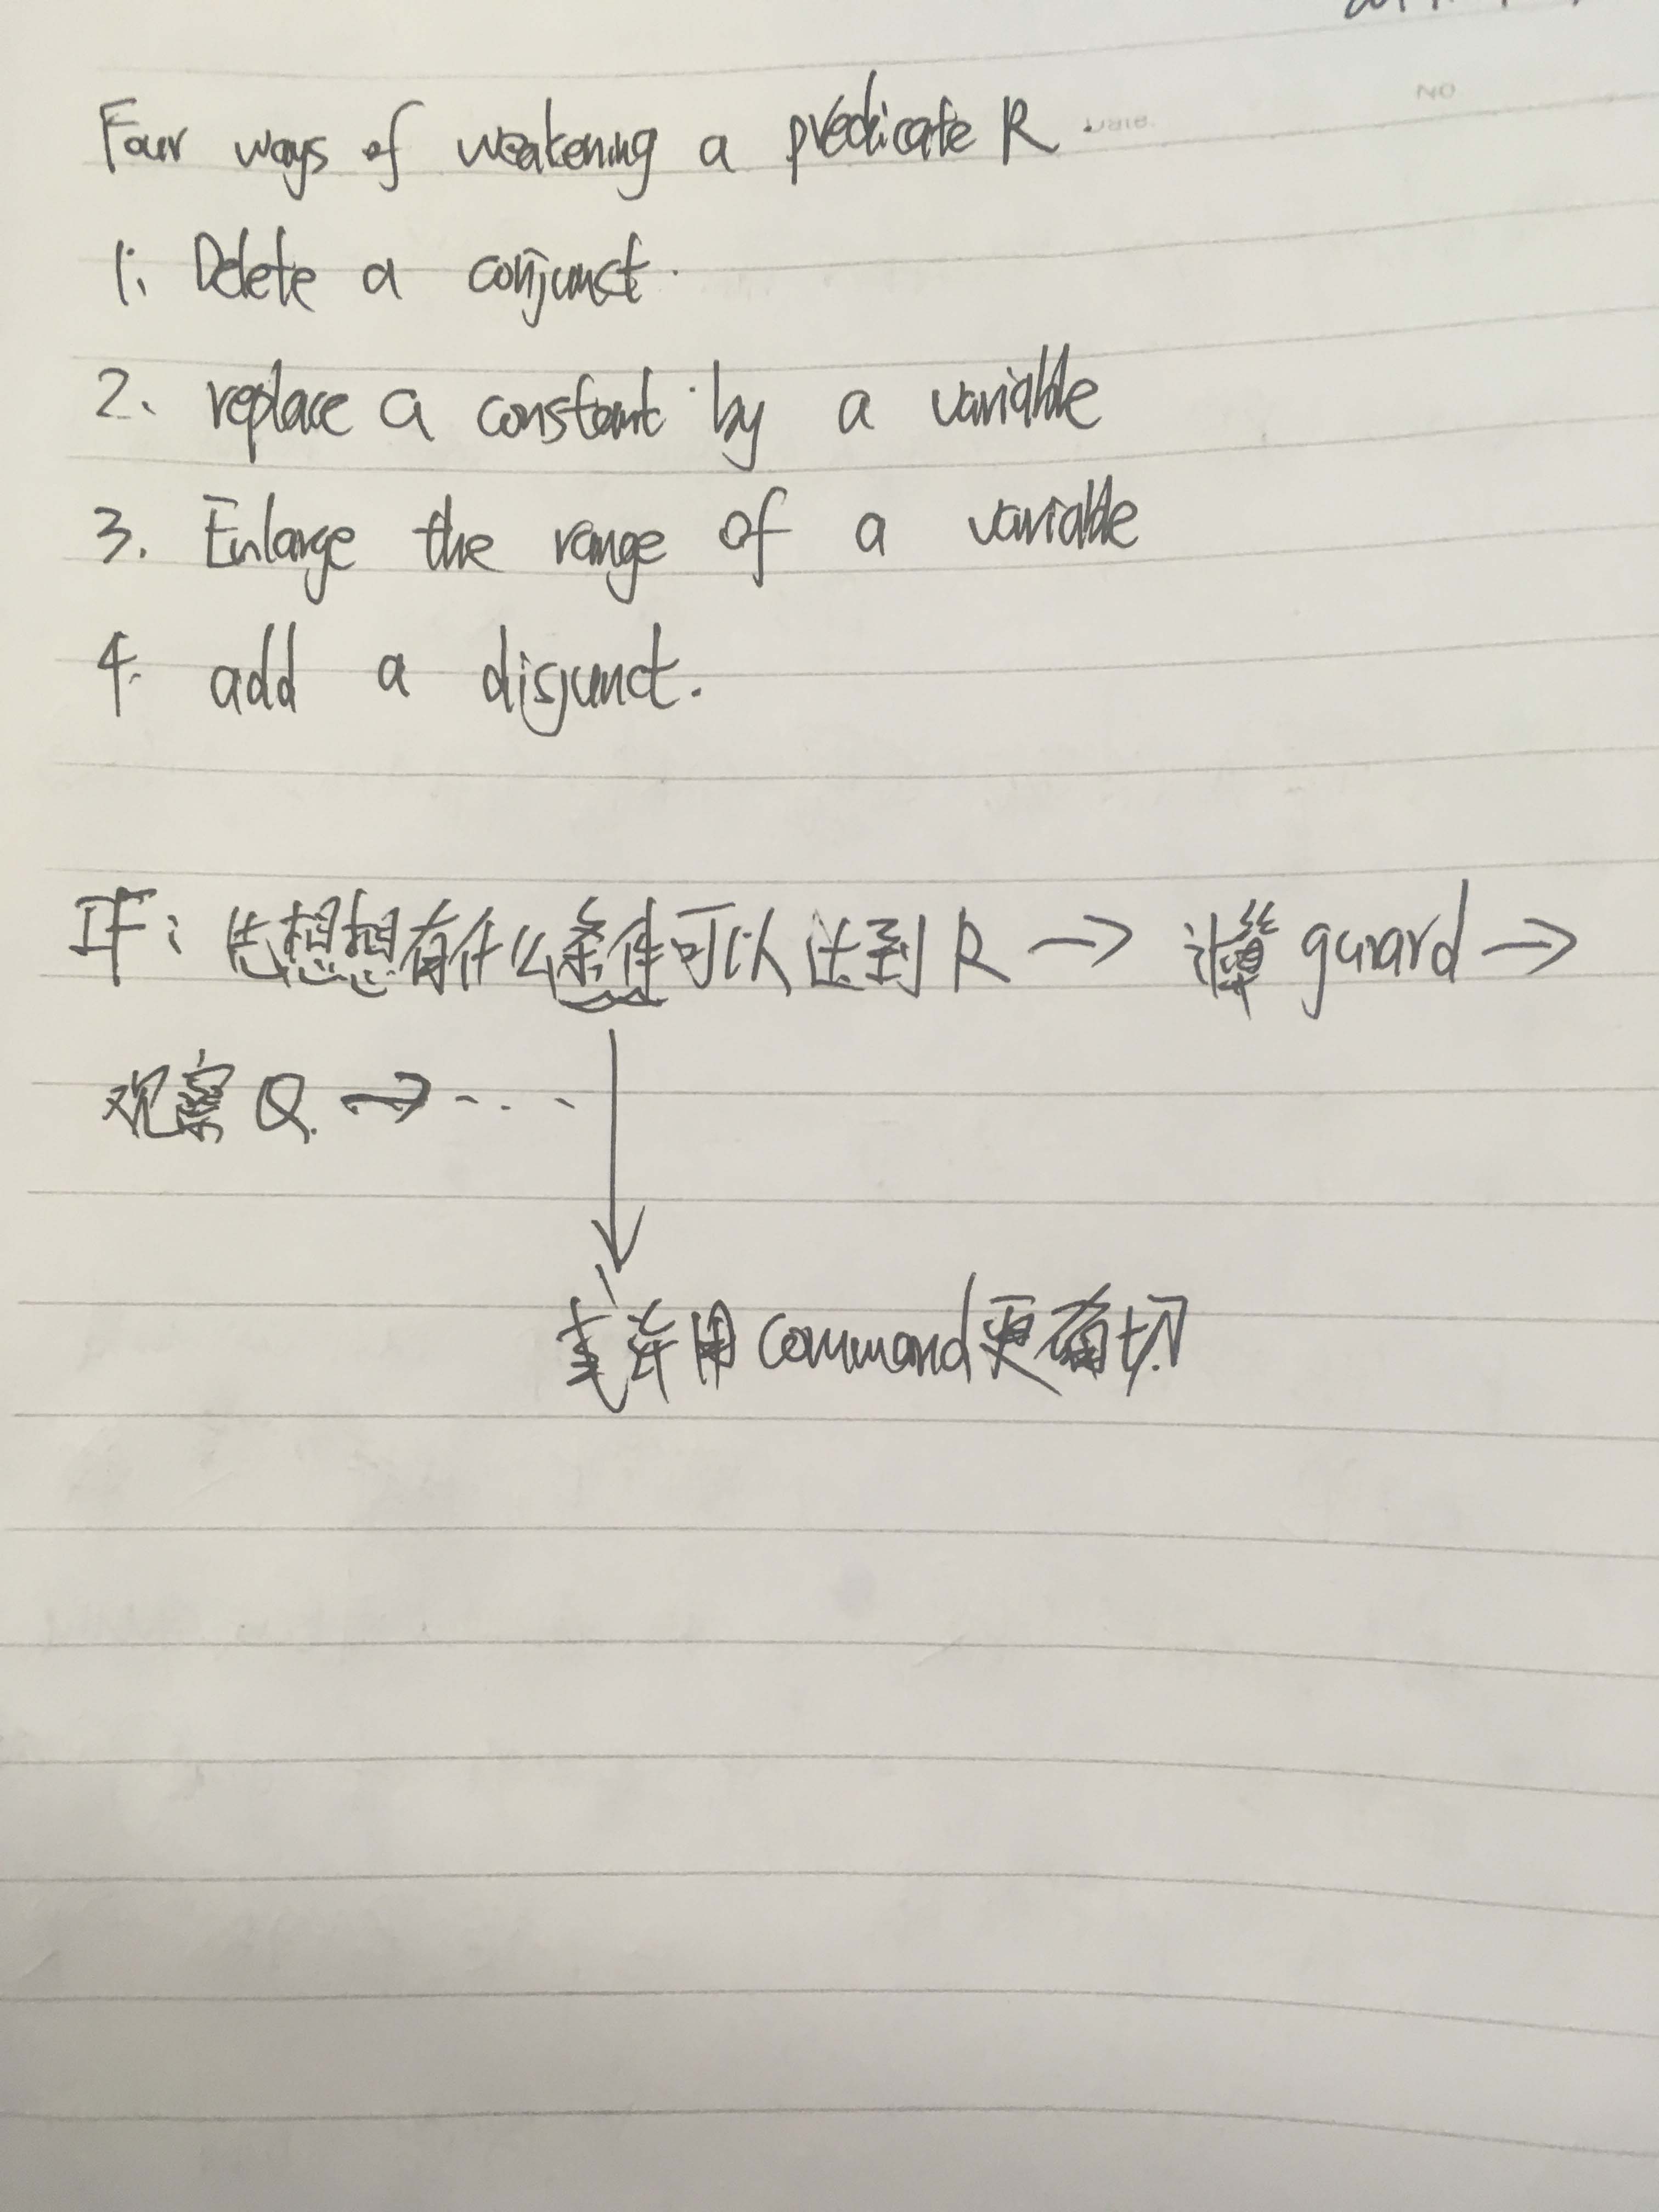 NO
Four ways of weakening a predicate R.
1. Delete a conjunct.
2. replace a constant by a variable
3. Enlarge the range of a variable
4. add a disjunct.
IF: 先想想有什么条件可以达到 R → 计算 guard →
观察 Q. → ...
用 command 更确切